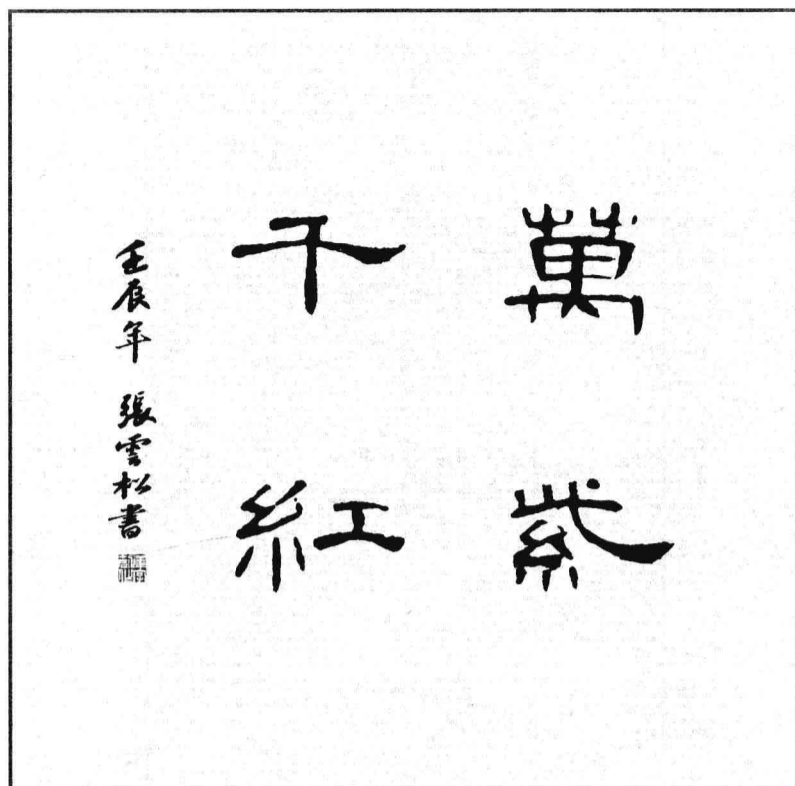 萬紫
千紅
壬辰年 張雲松書